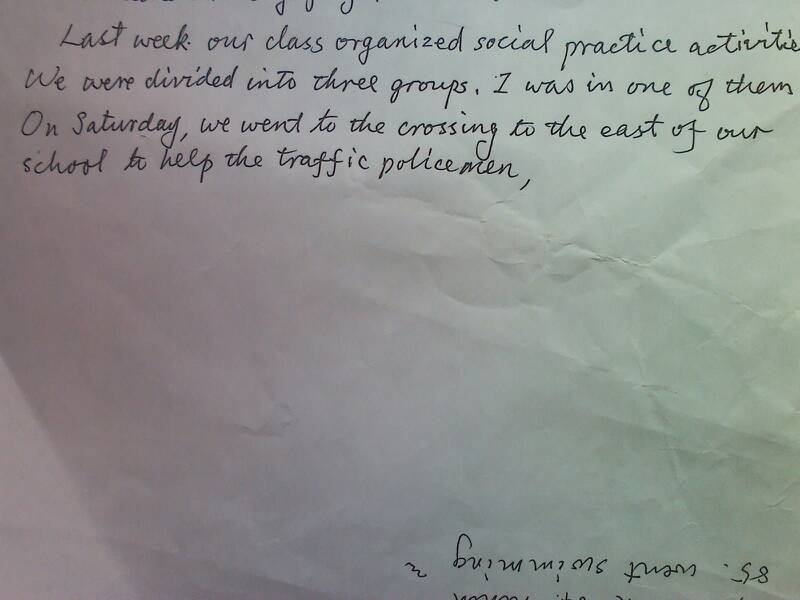 Last week. our class organized social practice activitie
We were divided into three groups. I was in one of them
On Saturday, we went to the crossing to the east of our
school to help the traffic policemen,
85. went swimming